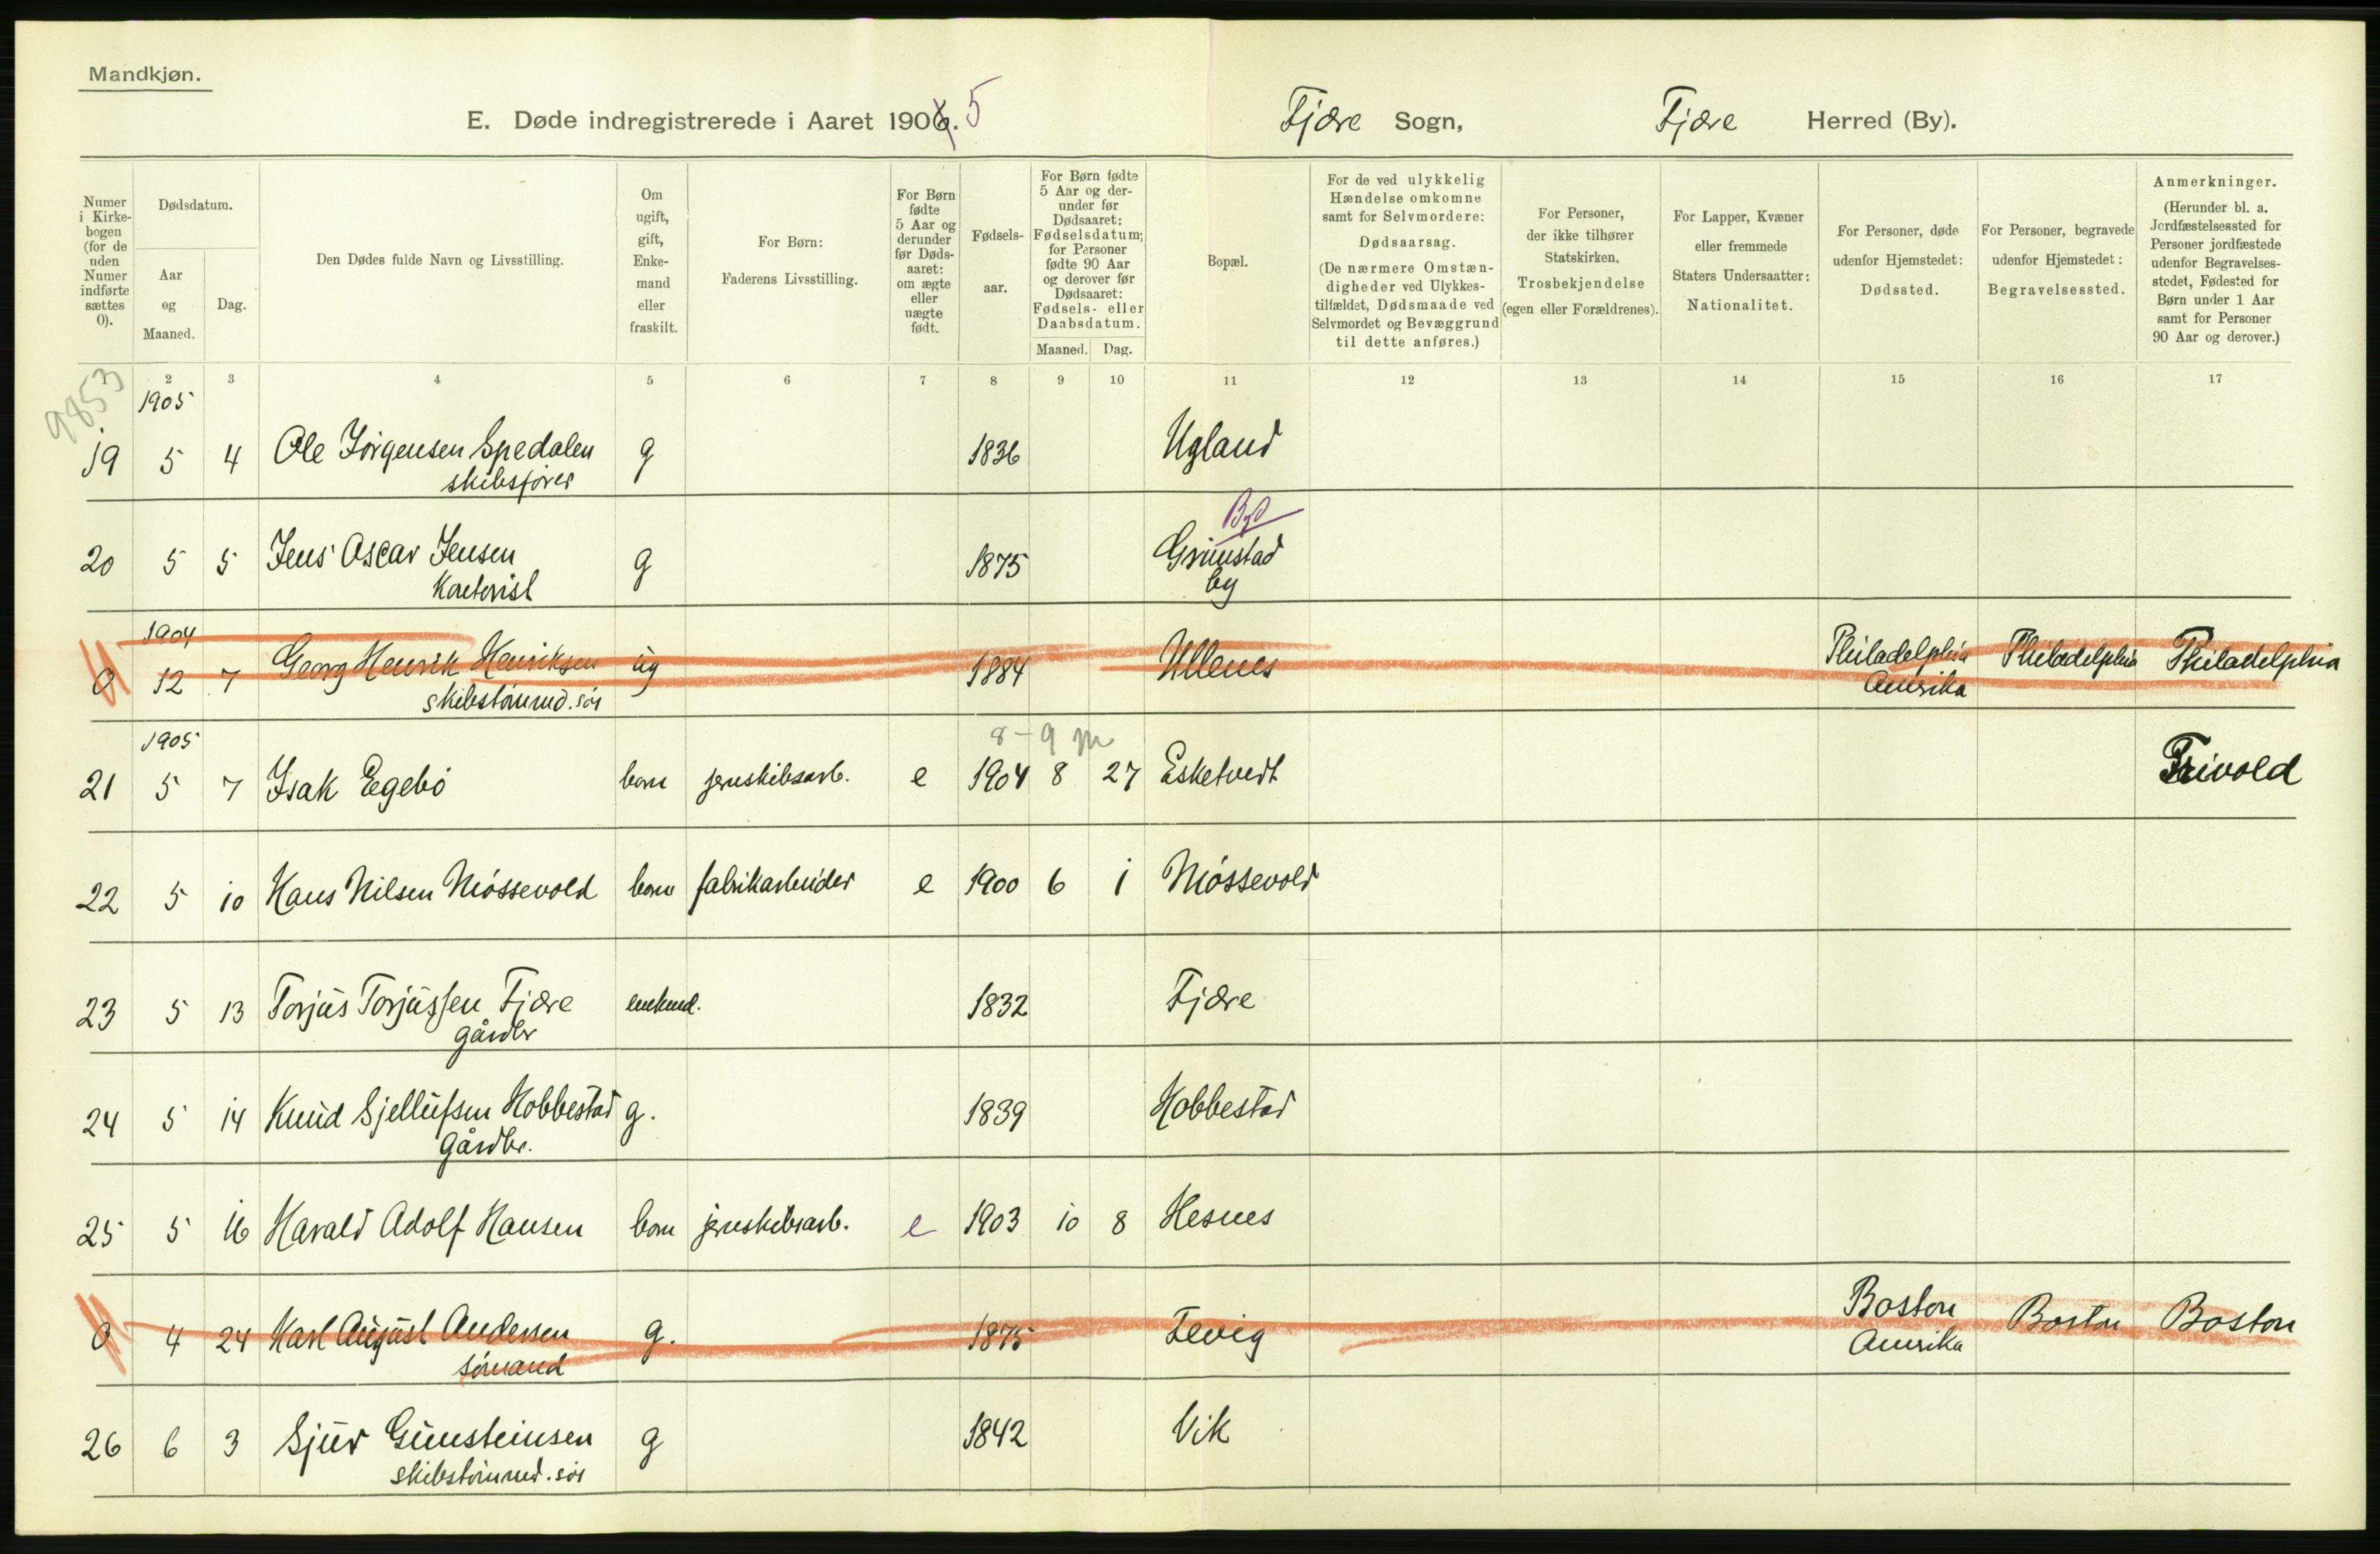 Mandkjøn.
E. Døde indregistrerede i Aaret 1906. 5
Fjære Sogn,
Fjære Herred (By).
Numer
i Kirke-
bogen
(for de
uden
Numer
indførte
sættes
0).
Dødsdatum.
Aar
og
Maaned.
Dag.
Den Dødes fulde Navn og Livsstilling.
Om
ugift,
gift,
Enke-
mand
eller
fraskilt.
For Børn:
Faderens Livsstilling.
For Børn
fødte
5 Aar og
derunder
før Døds-
aaret:
om ægte
eller
uægte
født.
Fødsels-
aar.
For Børn fødte
5 Aar og der-
under før
Dødsaaret:
Fødselsdatum;
for Personer
fødte 90 Aar
og derover før
Dødsaaret:
Fødsels- eller
Daabsdatum.
Maaned. Dag.
Bopæl.
For de ved ulykkelig
Hændelse omkomne
samt for Selvmordere:
Dødsaarsag.
(De nærmere Omstæn-
digheder ved Ulykkes-
tilfældet, Dødsmaade ved
Selvmordet og Bevæggrund
til dette anføres.)
For Personer,
der ikke tilhører
Statskirken,
Trosbekjendelse
(egen eller Forældrenes).
For Lapper, Kvæner
eller fremmede
Staters Undersaatter:
Nationalitet.
For Personer, døde
udenfor Hjemstedet:
Dødssted.
For Personer, begravede
udenfor Hjemstedet:
Begravelsessted.
Anmerkninger.
(Herunder bl. a.
Jordfæstelsessted for
Personer jordfæstede
udenfor Begravelses-
stedet, Fødested for
Børn under 1 Aar
samt for Personer
90 Aar og derover.)
2 3 4 5 6 7 8 9 10 11 12 13 14 15 16 17
9853
1905
19 5 4 Ole Jörgensen Spedalen g 1836 Ugland
skibsfører
Byd
20 5 5 Jens Oscar Jensen g 1875 Grimstad
Kontorist by
1904
0 12 7 Georg Henrik Henriksen ug 1884 Ullenes Philadelphia Philadelphia Philadelphia
skibstömmd. sön Amerika
1905 8-9 m
21 5 7 Isak Egebö barn jernskibsarb. e 1904 8 27 Esketvedt Frivold
22 5 10 Hans Nilsen Mössevold barn fabrikarbeider e 1900 6 1 Mössevold
23 5 13 Torjus Torjussen Fjære enkemd. 1832 Fjære
gårdbr
24 5 14 Knud Sjellufsen Hobbestad g. 1839 Hobbestad
Gårdbr.
25 5 16 Harald Adolf Hansen barn jernskibsarb. e 1903 10 8 Hesnes
0 4 24 Karl August Andersen g. 1875 Fevig Boston Boston Boston
sömand Amerika
26 6 3 Sjur Gunsteinsen g 1842 Vik
skibstömmd. sön